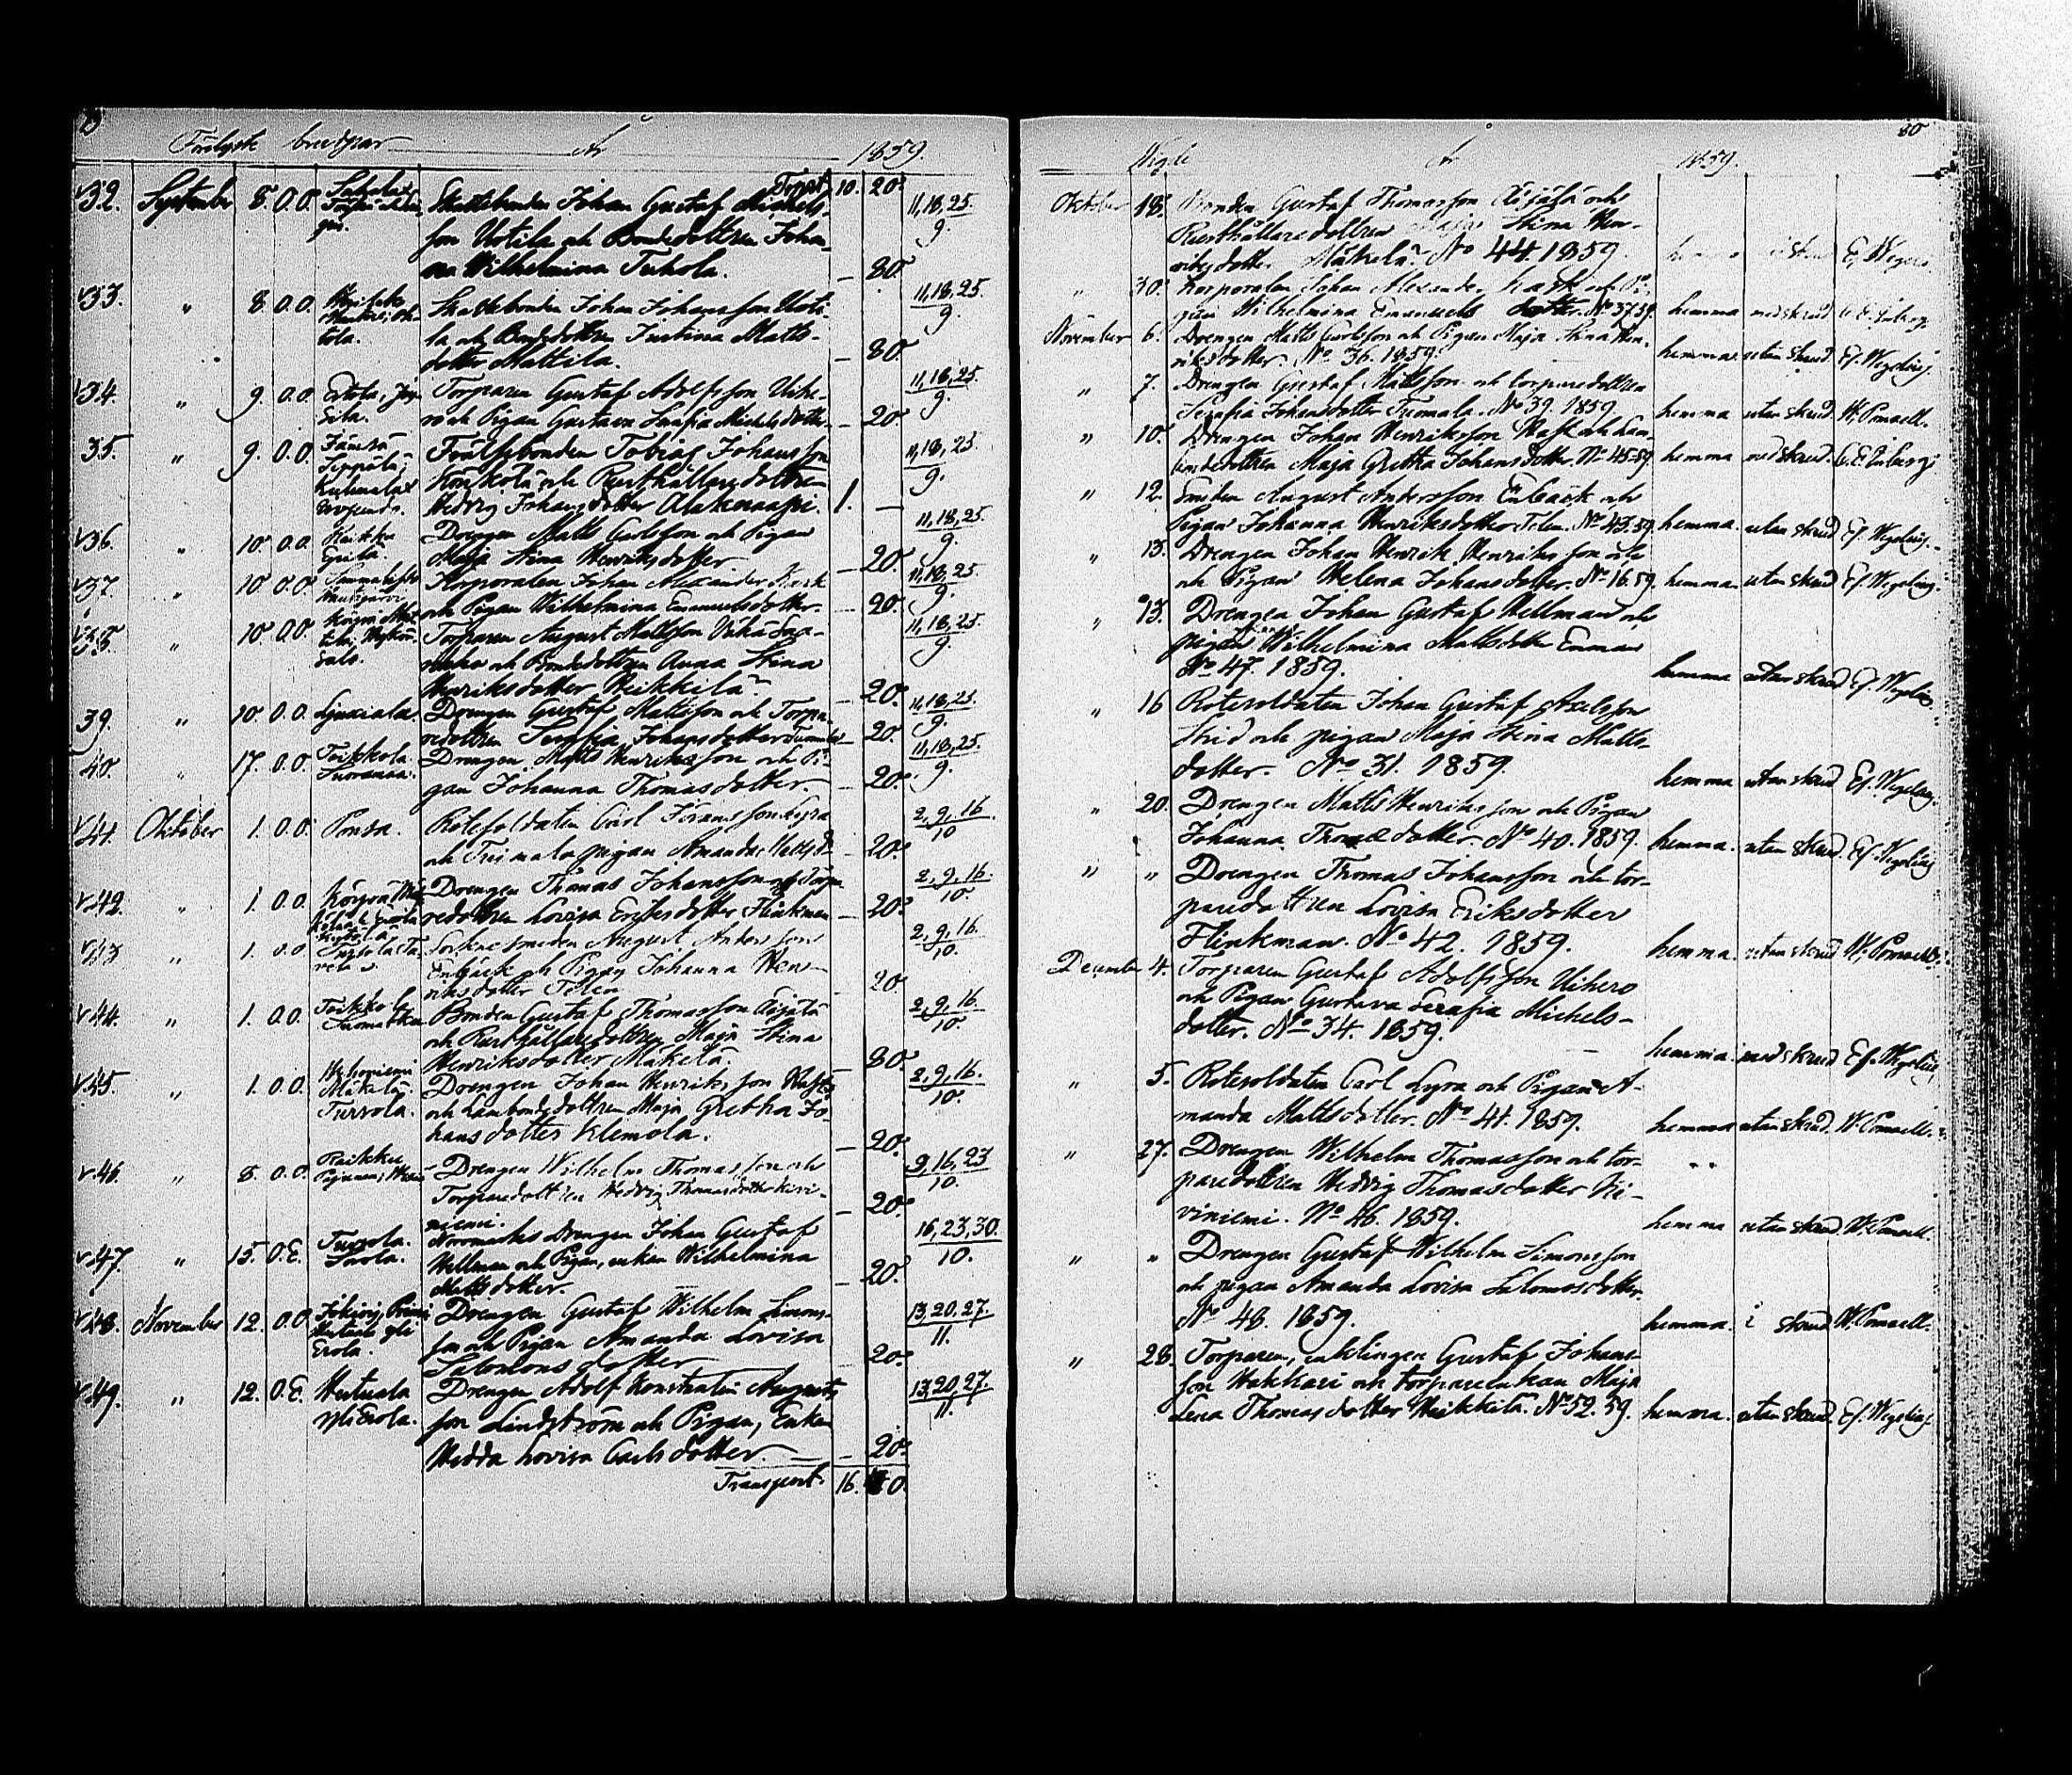 Förlyste brudpar År 1859.
Trspt 10. 20.
32. September 8. O.O. Skattebonden Johan Gustaf Michels-
son Uotila och Bondedottren Johan-
na Wilhelmina Tuhola. – 80.
11,18,25.
9.
33. " 8. O.O. Skattebonden Johan Johansson Uoti-
la och Bondedottren Justina Matts-
dotter Mattila. – 80.
11,18,25.
9.
34. " 9. O.O. Torparen Gustaf Adolfsson Uihe-
ro och Pigan Gustava Serafia Michelsdotter – 20.
11,18,25.
9.
35. " 9. O.O. Jämsä
Seppälä,
Frälsebonden Tobias Johansson
Könkölä och Rusthållaredottren
Hedvig Johansdotter Alaknaapi. 1. –
11,18,25.
9.
36. " 10. O.O. Drengen Matts Carlsson och Pigan
Maja Stina Henriksdotter – 20.
11,18,25.
9.
37. " 10. O.O. Korporalen Johan Alexander Kask
och Pigan Wilhelmina Emanuelsdotter. – 20.
11,18,25.
9.
38. " 10. O.O. Torparen August Mattsson
och Bondedottren Anna Stina
Henriksdotter Heikkilä. – 20.
11,18,25.
9.
39. " 10. O.O. Drengen Gustaf Mattsson och Torpa-
redottren Serafia Johansdotter Tuomola – 20.
11,18,25.
9.
40. " 17. O.O. Toikkola.
Drengen Matts Henriksson och Pi-
gan Johanna Thomasdotter. – 20.
11,18,25.
9.
41. Oktober 1. O.O. Ponsa. Rotesoldaten Carl Göransson Lyra
och pigan Amanda Mattsdr – 20.
2,9,16.
10
42. " 1. O.O. Drengen Thomas Johansson och Torpa-
redottren Lovisa Eriksdotter Flinkman – 20.
2,9,16.
10.
43 " 1. O.O Socknesmeden August Andersson
Enbäck och Pigan Johanna Hen-
riksdotter Telen – 20.
2,9,16.
10.
44. " 1. O.O. Toikkola
Bonden Gustaf Thomasson Äijälä
och Rusthållaredottren Maja Stina
Henriksdotter Mäkelä. – 80.
2,9,16.
10.
45. " 1. O.O. Mäkelä.
Tursola.
Drengen Johan Henriksson Rask
och Lanbondedottren Maja Gretha Jo-
hansdotter Klemola. – 20.
2,9,16.
10.
46. " 8. O.O. Drengen Wilhelm Thomasson och
Torparedottren Hedvig Thomasdotter Kivi-
niemi. – 20.
9,16,23
10.
47. " 15. O.E. Tursola.
Norrmarks Drengen Johan Gustaf
Hellman och Pigan, enkan Wilhelmina
Mattsdotter. – 20.
16,23,30.
10.
48. November 12. O.O. Drengen Gustaf Wilhelm Simons-
son och Pigan Amanda Lovisa
Salomonsdotter – 20.
13,20,27.
11.
49. " 12. O.E. Hutuala
Drengen Adolf Konstantin Augusts-
son Lindström och Pigan, Enkan
Hedda Lovisa Carlsdotter. – 20.
13,20,27
11.
Transport. 16.
80
Wigde År 1859.
Oktober 18. Bonden Gustaf Thomasson Äijälä och
Rusthållaredottren Maja Stina Hen-
riksdotter Mäkelä No 44. 1859. hemma
" 30. Korporalen Johan Alexander Kask och Pi-
gan Wilhelmina Emanuelsdotter. No 37.59. hemma med skrud
November 6. Drengen Matts Carlsson och Pigan Maja Stina Hen-
riksdotter. No 36. 1859. hemma utan skrud Ef. Wegelius.
" 7. Drengen Gustaf Mattsson och torparedottren
Serafia Johansdotter Tuomola. No 39. 1859 hemma utan skrud W. Pomoell.
" 10. Drengen Johan Henriksson Rask och Lan-
bondedottren Maja Gretha Johansdotter. No 45.59. hemma med skrud.
" 12. Smeden August Andersson Enbäck och
Pigan Johanna Henriksdotter Telen. No 43.59. hemma. utan skrud Ef. Wegelius.
" 13. Drengen Johan Henrik Henriksson och
och Pigan Helena Johansdotter. No 16.59. hemma utan skrud Ef. Wegelius.
" 13. Drengen Johan Gustaf Hellman och
pigan Wilhelmina Mattsdotter
No 47. 1859. hemma utan skrud Ef. Wegelius.
" 16 Rotesoldaten Johan Gustaf Axelsson
Strid och pigan Maja Stina Matts-
dotter. No 31. 1859. hemma utan skrud Ef. Wegelius.
" 20. Drengen Matts Henriksson och Pigan
Johanna Thomasdotter. No 40. 1859. hemma. utan skrud. Ef. Wegelius
" " Drengen Thomas Johansson och tor-
paredottren Lovisa Eriksdotter
Flinkman. No 42. 1859. hemma. utan skrud W. Pomoell.
December 4. Torparen Gustaf Adolfsson Uihero
och Pigan Gustava Serafia Michels-
dotter. No 34. 1859. hemma med skrud Ef. Wegelius
" 5. Rotesoldaten Carl Lyra och Pigan A-
manda Mattsdotter. No 41. 1859. hemma utan skrud. W. Pomoell.
" 27. Drengen Wilhelm Thomasson och tor-
paredottren Hedvig Thomasdotter Ki-
viniemi. No 46. 1859. hemma utan skrud. W. Pomoell.
" " Drengen Gustaf Wilhelm Simonsson
och pigan Amanda Lovisa Salomonsdotter
No 48. 1859. hemma. i skrud W. Pomoell.
" 28. Torparen, enklingen Gustaf Johans-
son Hakkari och torpareenkan Maja
Lena Thomasdotter Heikkilä. No 52.59. hemma. utan skrud. Ef. Wegelius